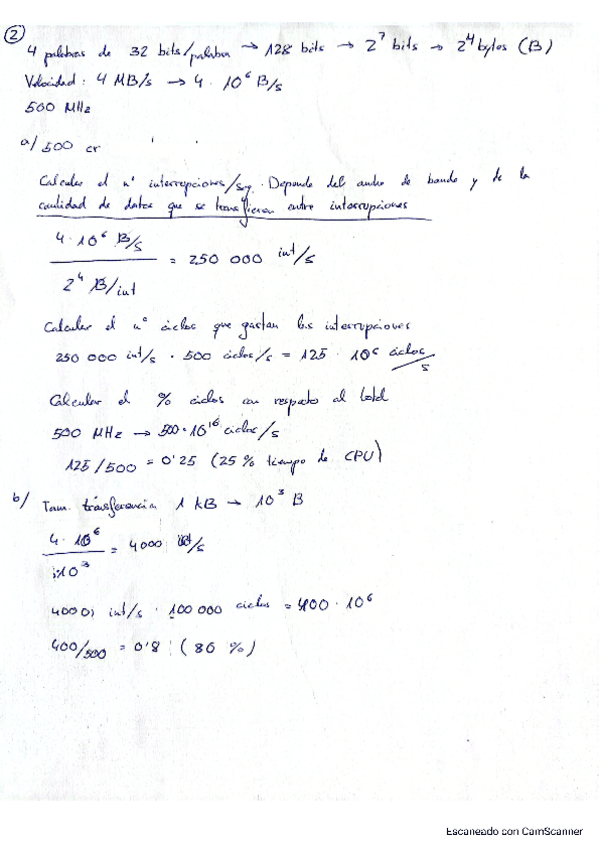 ②
4 palabras de 32 bits/palabra → 128 bits → 2⁷ bits → 2⁴ bytes (B)
Velocidad: 4 MB/s → 4 · 10⁶ B/s
500 MHz
a/ 500 cr
Calcular el nº interrupciones/sg. Depende del ancho de banda y de la
cantidad de datos que se transfieren entre interrupciones
4 · 10⁶ B/s / 2⁴ B/int = 250 000 int/s
Calcular el nº ciclos que gastan las interrupciones
250 000 int/s · 500 ciclos/s = 125 · 10⁶ ciclos/s
Calcular el % ciclos con respecto al total
500 MHz → 500·10¹⁶ ciclos/s
125/500 = 0'25 (25 % tiempo de CPU)
b/ Tam. transferencia 1 kB → 10³ B
4 · 10⁶ / 10³ = 4000 int/s
4000 int/s · 100 000 ciclos = 400 · 10⁶
400/500 = 0'8 (80 %)
Escaneado con CamScanner